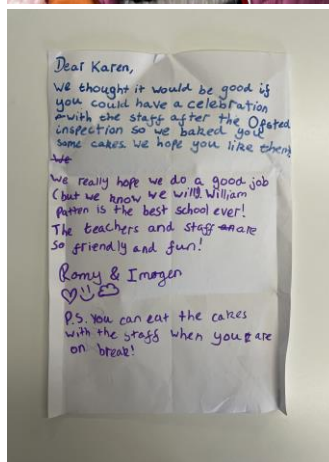 Dear Karen,
we thought it would be good if
you could have a celebration
with the staff after the Ofsted
inspection so we baked you
some cakes we hope you like them
We
We really hope we do a good job
(but we know we will! William
Patten is the best school ever!
The teachers and staff are
so friendly and fun!
Romy & Imogen
P.S. You can eat the cakes
with the staff when you are
on break!